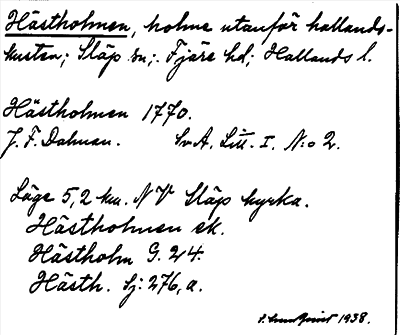 Hästholmen, holme utanför hallands-
kusten; Släp sn; Fjäre hd; Hallands l.
Hästholmen 1770.
J. F. Dalman. Sv A. Litt. I. N:o 2.
Läge 5,2 km. NV Släp kyrka.
Hästholmen ek.
Hästholm G. 24.
Hästh. Sj: 276, a.
1938.